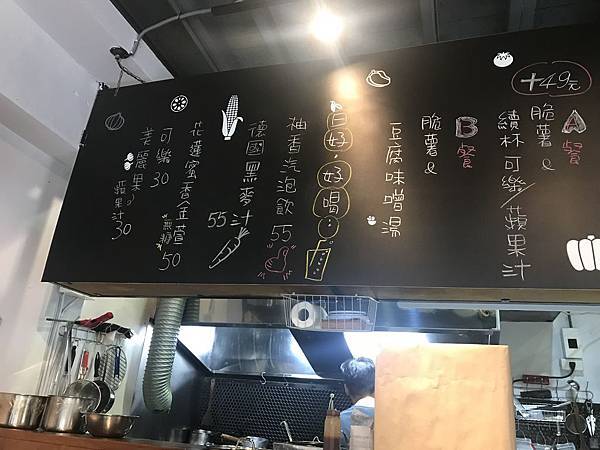 +49元
A餐
脆薯&
續杯可樂/蘋果汁
B餐
脆薯&
豆腐味噌湯
自好,好喝:
柚香汽泡飲55
德國黑麥汁55
花蓮蜜香金萱 無糖 50
可樂30
美麗果 蘋果汁30